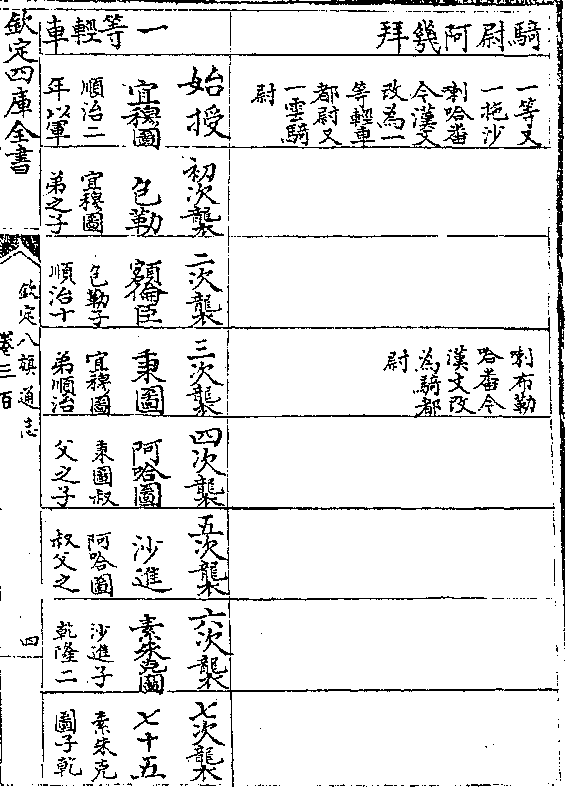 騎尉阿幾拜
一等又
一拖沙
喇哈番
今漢文
改為一
等輕車
都尉又
一雲騎
尉
喇布勒
哈番今
漢文改
為騎都
尉
一等輕車
始授
宜穆圖
順治二
年以軍
初次襲
包勒
宜穆圖
弟之子
二次襲
額倫臣
包勒子
順治十
三次襲
東圖
宜穆圖
弟順治
四次襲
阿哈圖
東圖叔
父之子
五次襲
沙進
阿哈圖
叔父之
六次襲
素朱克圖
沙進子
乾隆二
七次襲
七十五
素朱克
圖子乾
欽定四庫全書
欽定八旗通志
卷三百
四